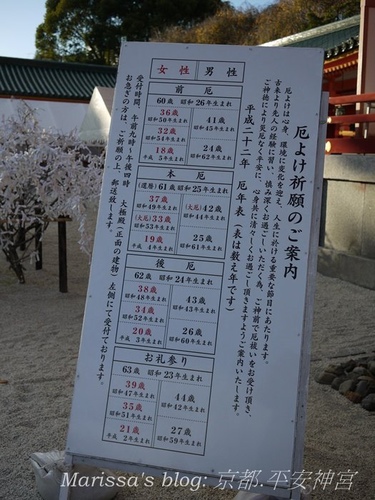 厄よけ祈願のご案内
厄よけは心身、環境に変化を迎え、人生に於ける重要な節目にあたります。
古来より先人の経験に習い、慎み深くお過ごしいただく為、ご神前で厄祓いをお受け頂き、
ご神徳により災厄なく平安に、心身共に清々しくお過ごし頂きますようご案内いたします。
平成二十二年 厄年表（表は数え年です）
女性 男性
前厄
60歳 昭和26年生まれ
36歳 昭和50年生まれ
41歳 昭和45年生まれ
32歳 昭和54年生まれ
18歳 平成5年生まれ
24歳 昭和62年生まれ
本厄
(還暦)61歳 昭和25年生まれ
37歳 昭和49年生まれ
(大厄)42歳 昭和44年生まれ
(大厄)33歳 昭和53年生まれ
19歳 平成4年生まれ
25歳 昭和61年生まれ
後厄
62歳 昭和24年生まれ
38歳 昭和48年生まれ
43歳 昭和43年生まれ
34歳 昭和52年生まれ
20歳 平成3年生まれ
26歳 昭和60年生まれ
お礼参り
63歳 昭和23年生まれ
39歳 昭和47年生まれ
44歳 昭和42年生まれ
35歳 昭和51年生まれ
21歳 平成2年生まれ
27歳 昭和59年生まれ
受付時間、午前九時〜午後四時 大極殿(正面の建物)左側にて受付ております。
お急ぎの方は、ご祈願の上、郵送致します。
Marissa's blog: 京都.平安神宮